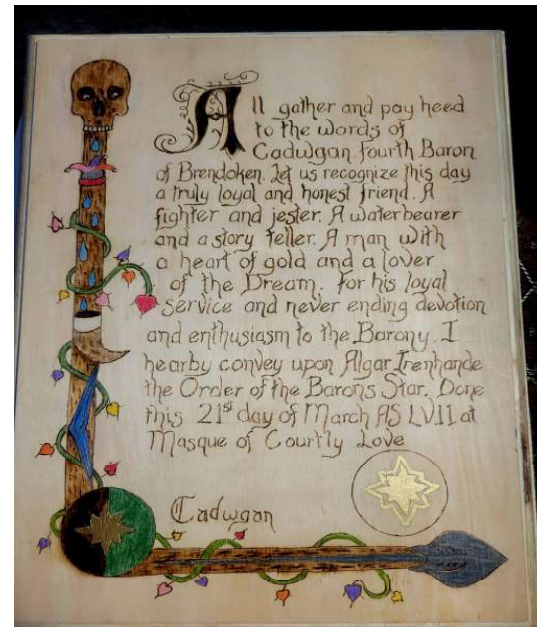 All gather and pay heed
to the words of
Cadwgan fourth Baron
of Brendoken. Let us recognize this day
a truly loyal and honest friend. A
fighter and jester. A waterbearer
and a story teller. A man with
a heart of gold and a lover
of the Dream. for his loyal
service and never ending devotion
and enthusiasm to the Barony. I
hearby convey upon Algar Irenhande
the Order of the Barons Star. Done
this 21st day of March AS LVII at
Masque of Courtly Love
Cadwgan